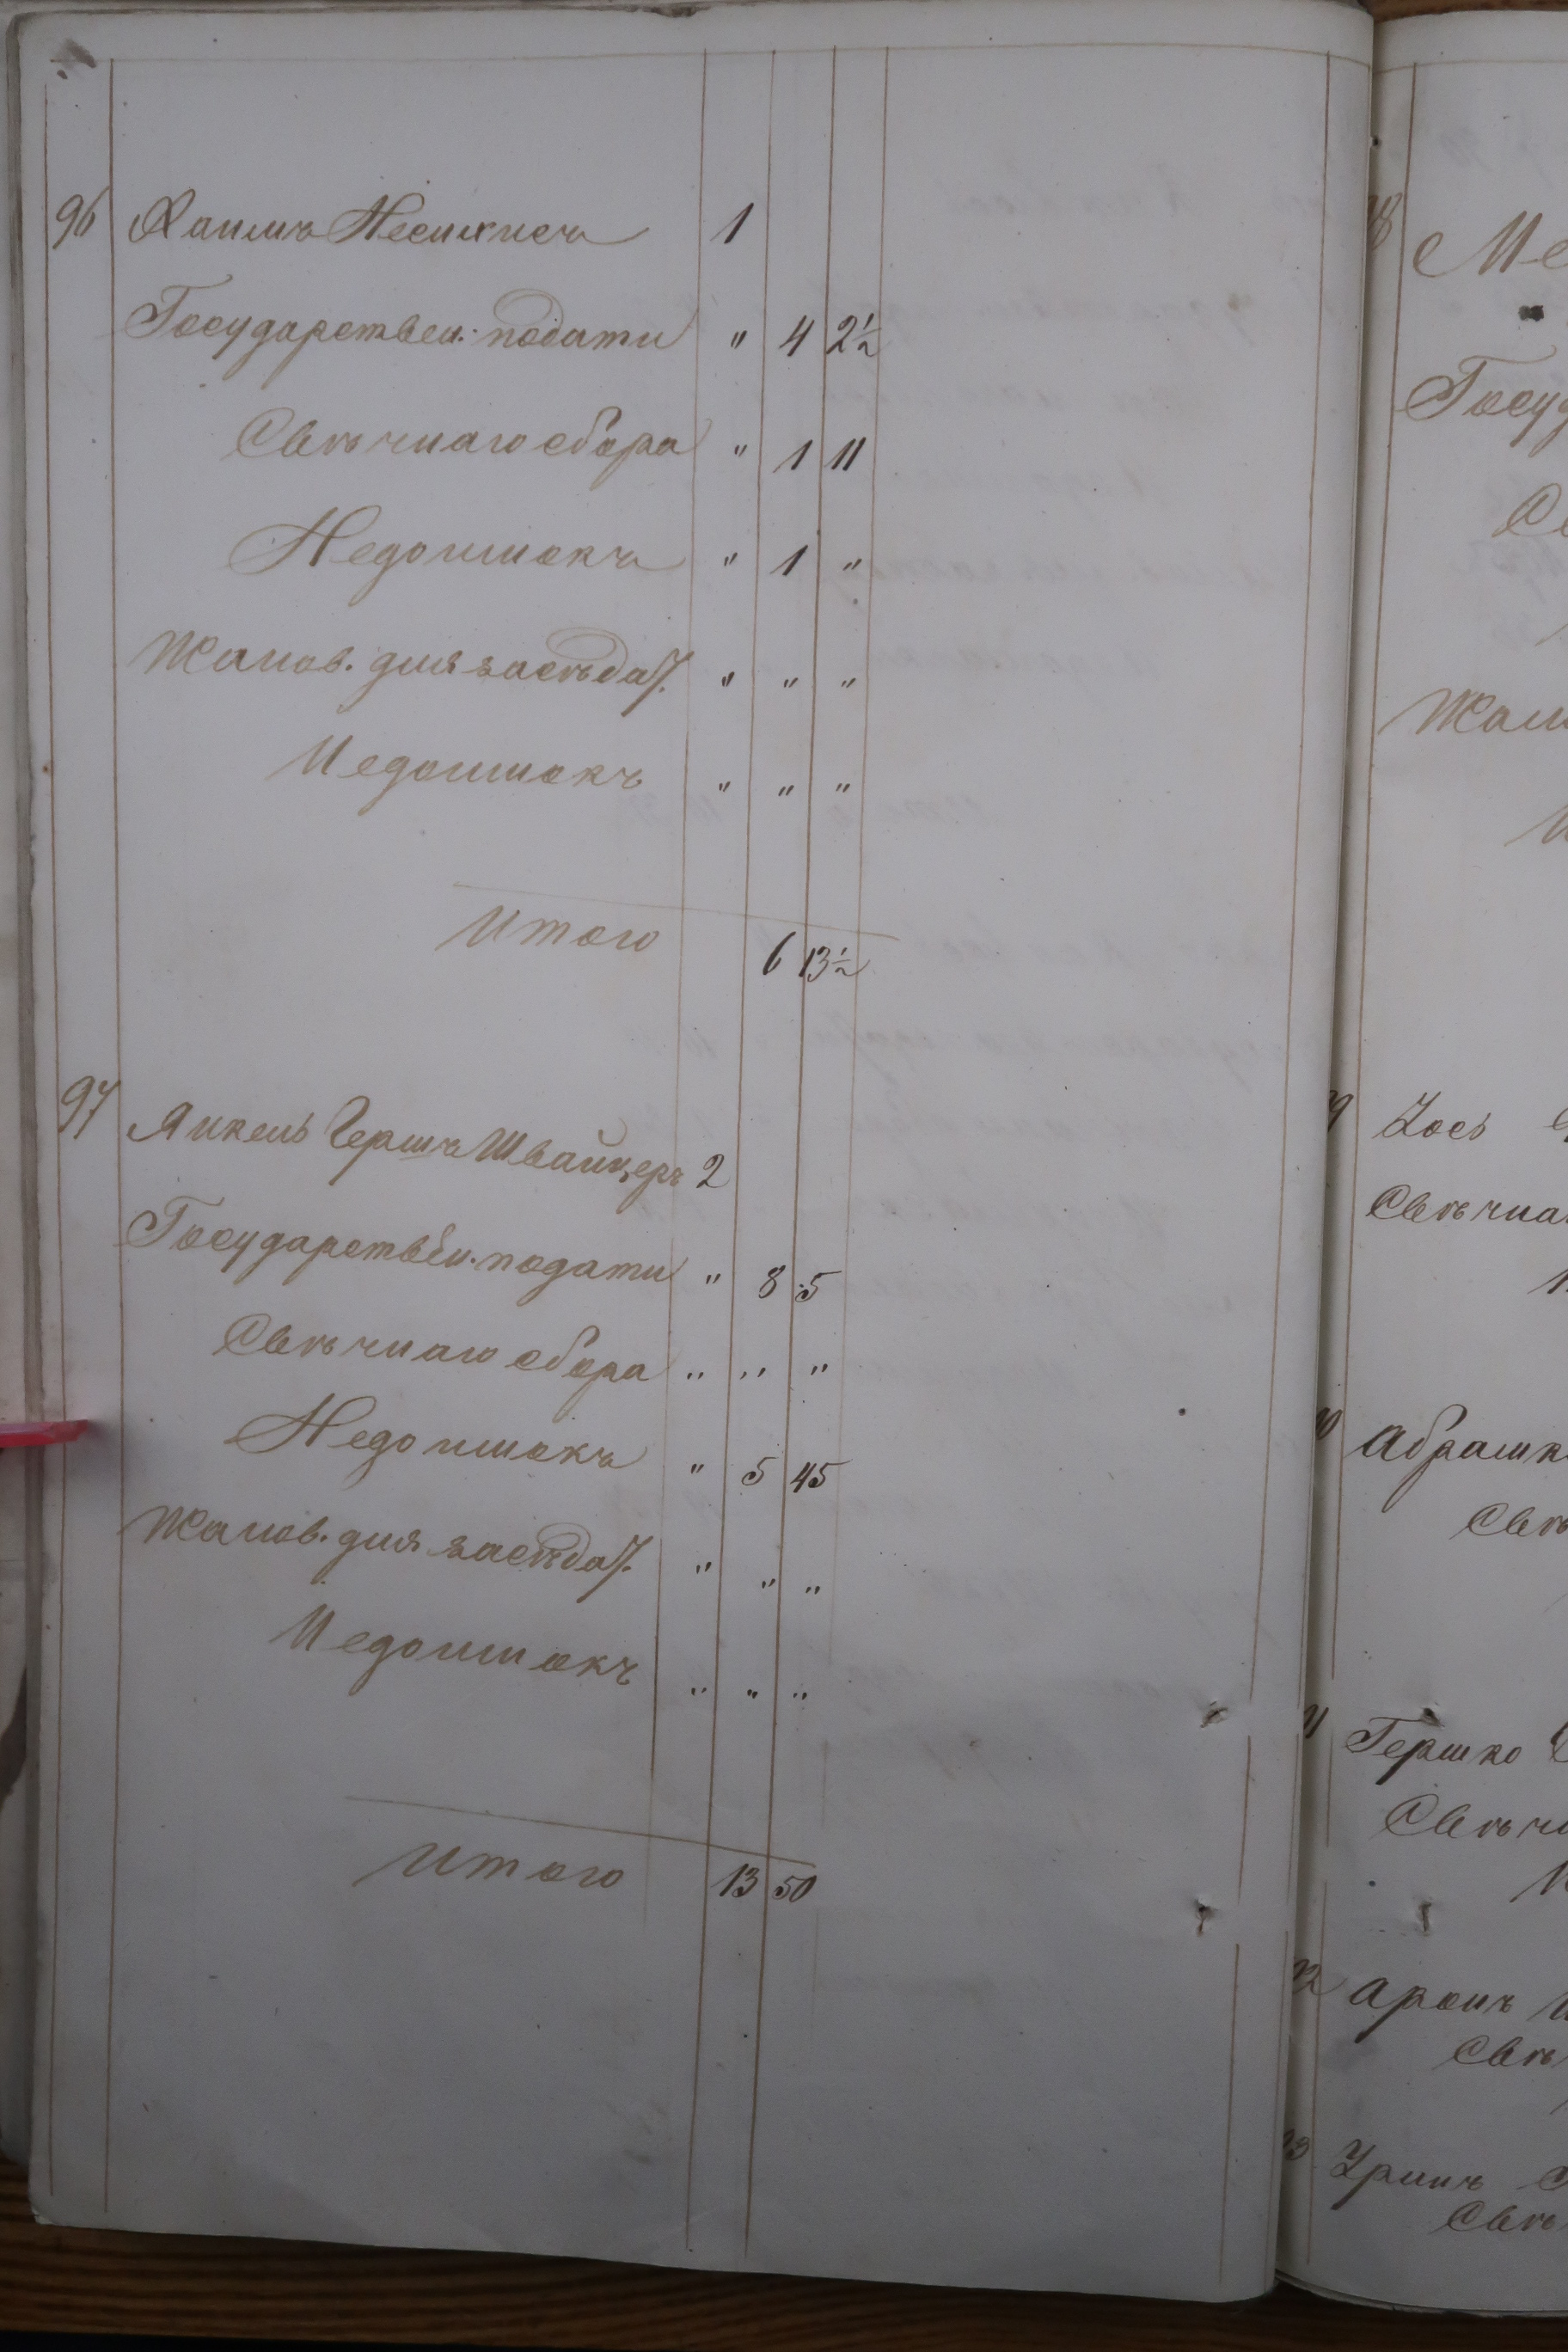 96 Хаимъ Несинисъ 1
Государствен: подати " 4 2½
Свѣчнаго сбора " 1 11
Недоимокъ " 1 "
Жалов. для засѣдат. " " "
Недоимокъ " " "
Итого 6 13½
97 Янкель Гершъ Швайцеръ 2
Государствен. подати " 8 5
Свѣчнаго сбора " " "
Недоимокъ " 5 45
Жалов. для засѣдат. " " "
Недоимокъ " " "
Итого 13 50
98 Ме
Госуд
Св
Жал
Зось
Свѣчна
Абрашк
Свѣ
Гершко
Свѣчн
Аронъ
Свѣ
Свѣ